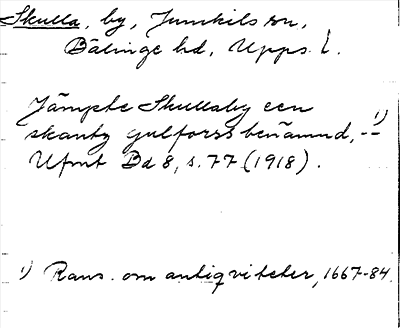 Skulla, by, Jumkils sn,
Bälinge hd, Upps. l.
Jämpte Skullaby een
skantz gulforss benämnd, -- 1)
Ufmt Bd 8, s. 77 (1918).
1) Rans. om antiqviteter, 1667-84